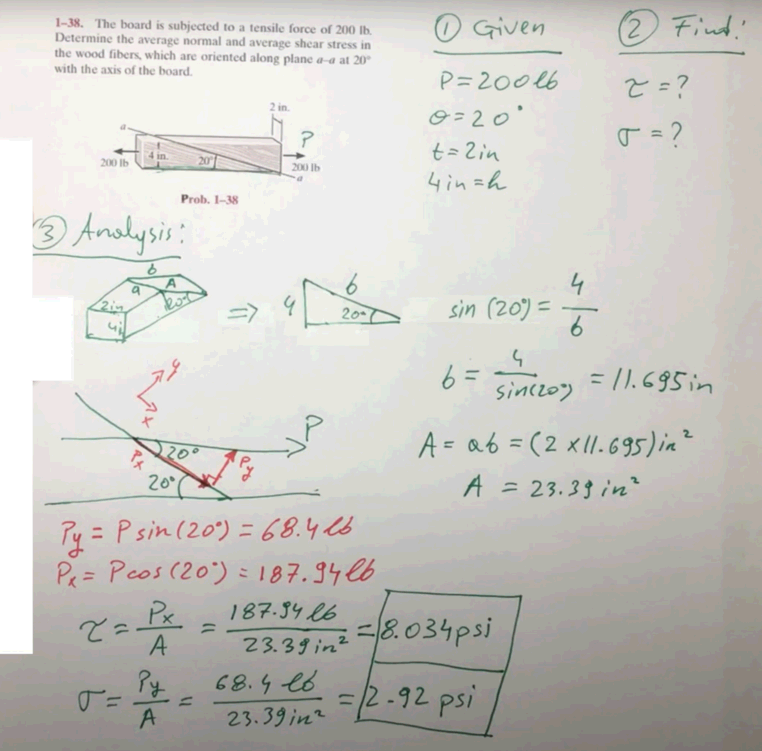 1–38. The board is subjected to a tensile force of 200 lb.
Determine the average normal and average shear stress in
the wood fibers, which are oriented along plane a–a at 20°
with the axis of the board.
2 in.
a
P
4 in.
20°
200 lb
200 lb
a
Prob. 1–38
① Given
P = 200 lb
θ = 20°
t = 2in
4in = h
② Find:
τ = ?
σ = ?
③ Analysis:
b
a
A
2in
20°
4i
⇒
4
b
20°
sin (20°) = 4/b
b = 4/sin(20°) = 11.695 in
A = ab = (2 x 11.695) in²
A = 23.39 in²
y
x
P
20°
Px
Py
20°
Py = P sin (20°) = 68.4 lb
Px = P cos (20°) = 187.94 lb
τ = Px/A = 187.94 lb/23.39 in² = 8.034 psi
σ = Py/A = 68.4 lb/23.39 in² = 2.92 psi